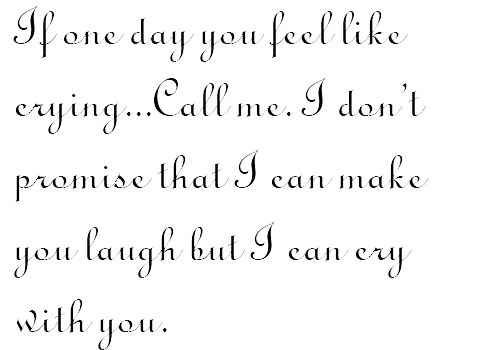 If one day you feel like
crying...Call me. I don't
promise that I can make
you laugh but I can cry
with you.